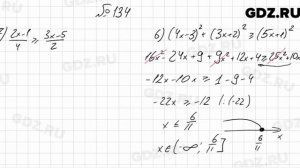 GDZ.RU
№ 134
) (2x-1)/4 ≥ (3x-5)/2
б) (4x-3)² + (3x+2)² ≥ (5x+1)²
16x² - 24x + 9 + 9x² + 12x + 4 ≥ 25x² + 10x
-12x - 10x ≥ 1 - 9 - 4
-22x ≥ -12 | (-22)
x ≤ 6/11
6/11
x
x ∈ (-∞; 6/11]
GDZ.RU